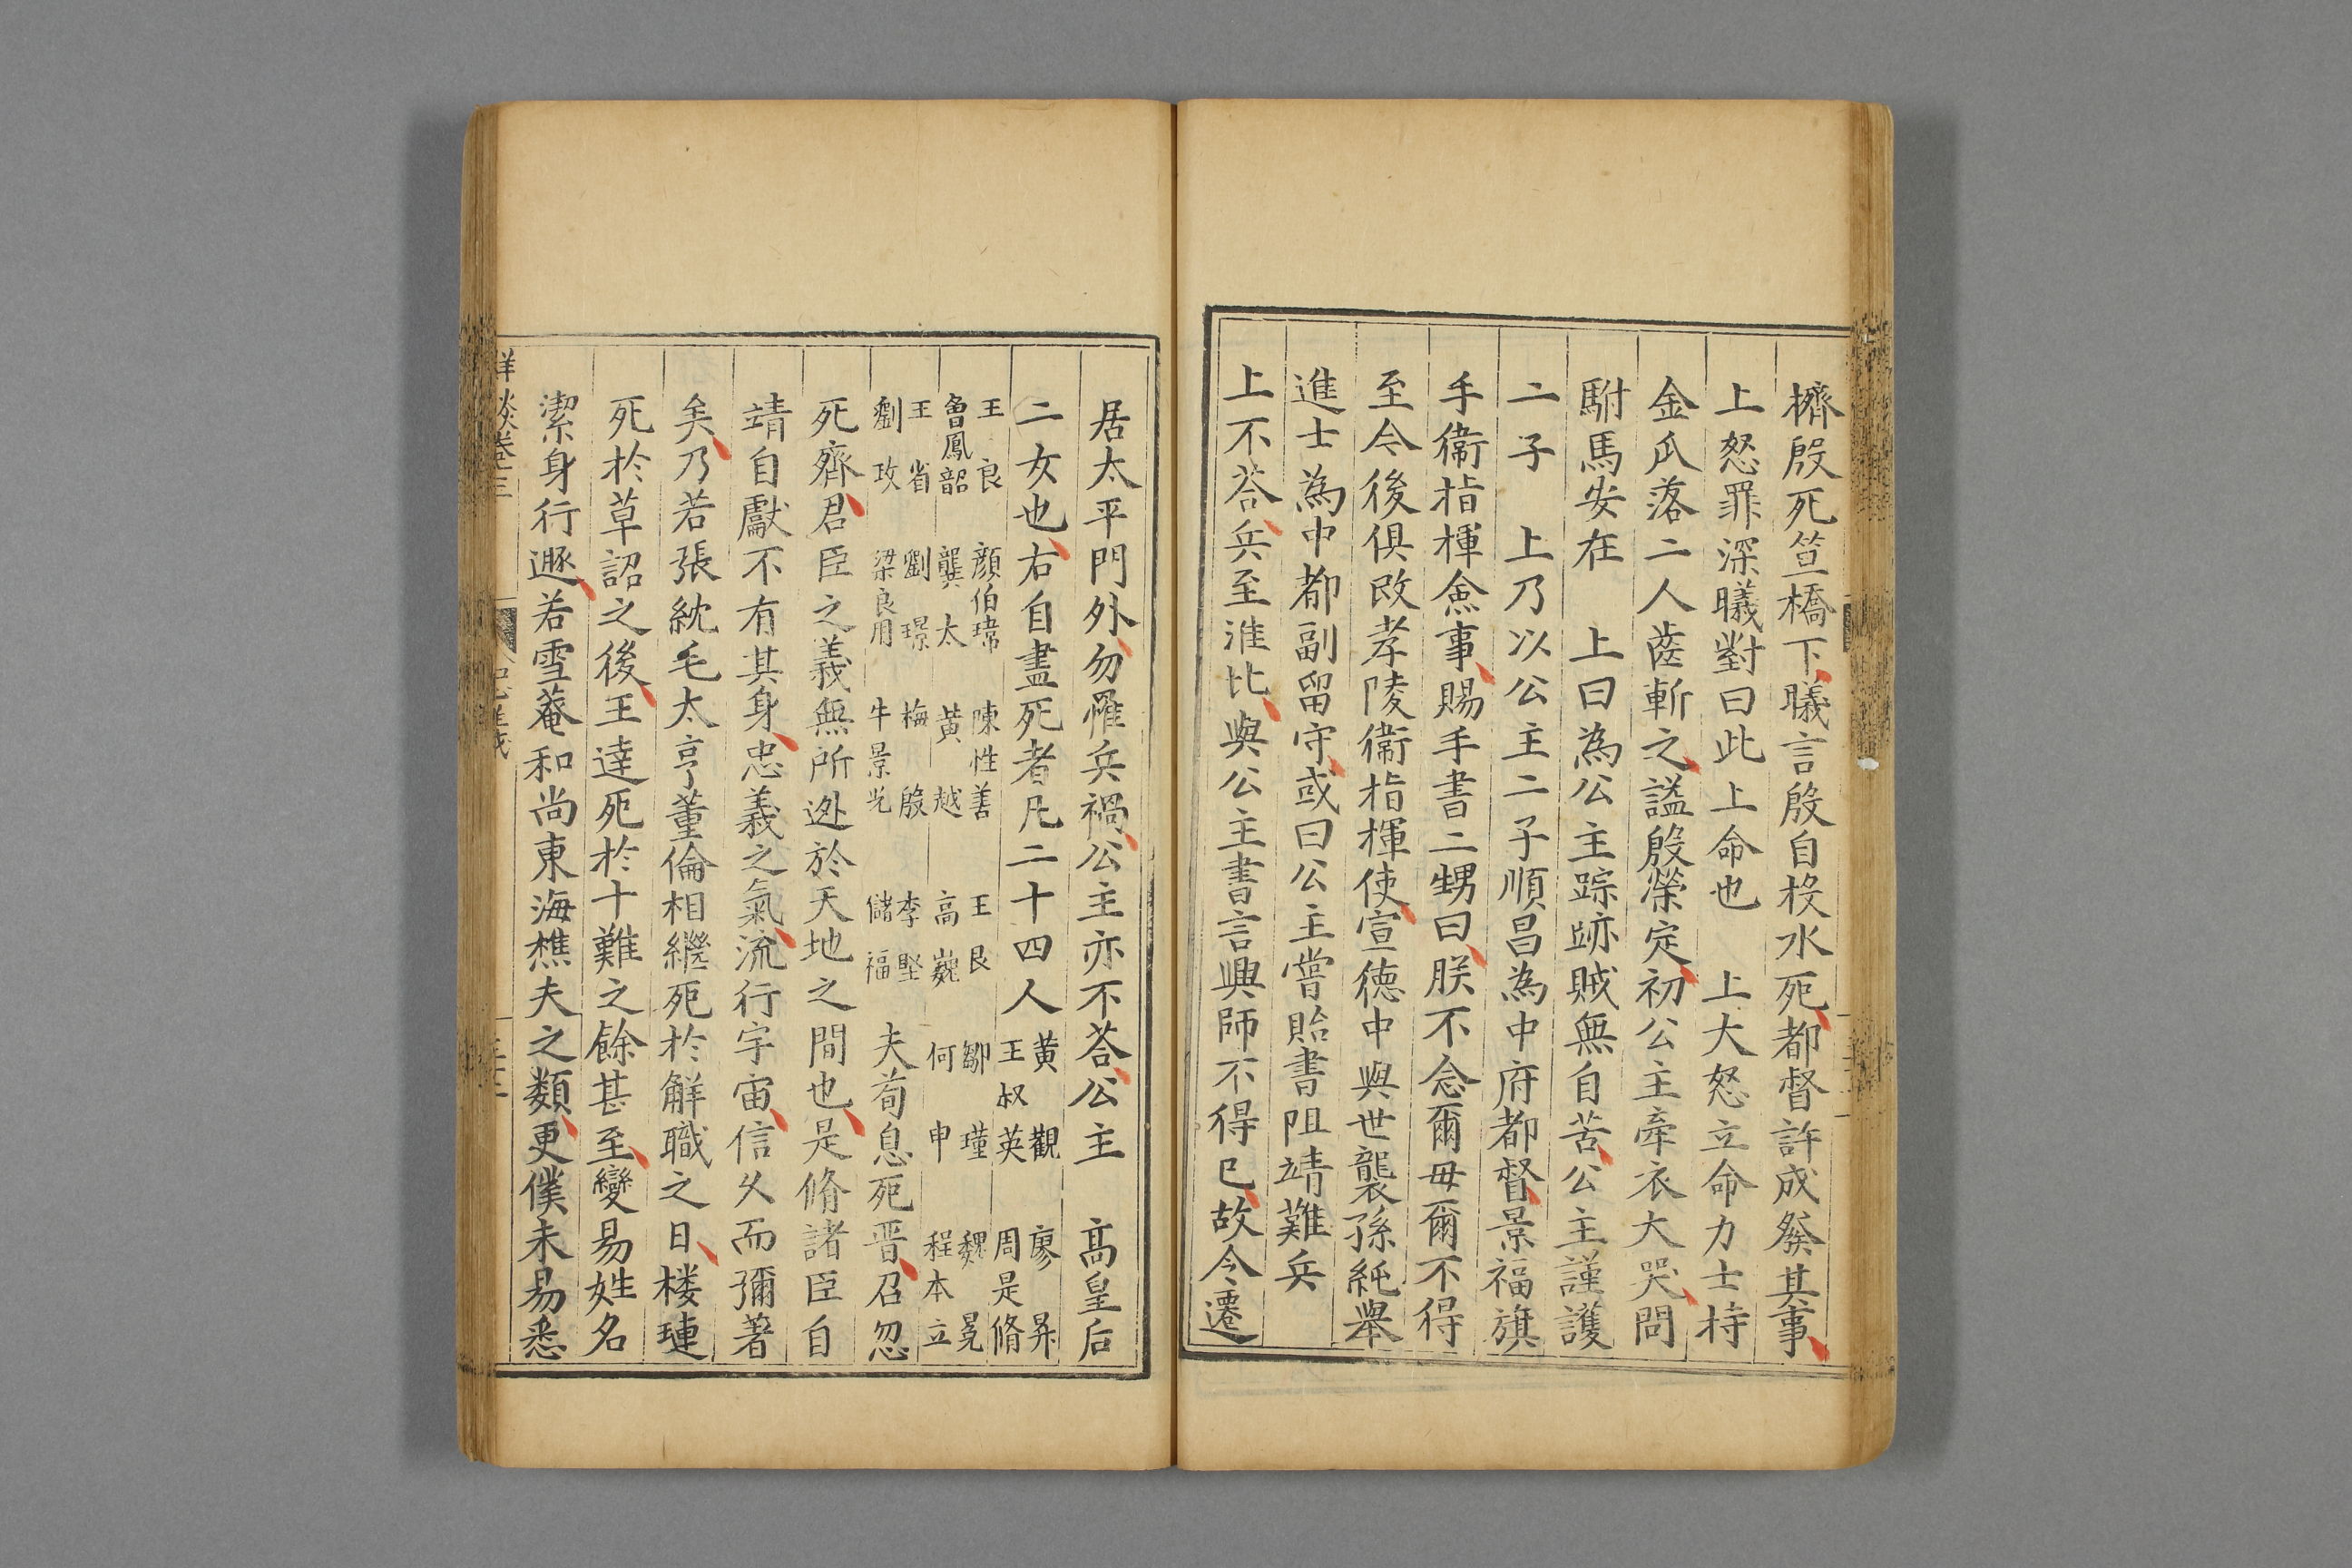 擠殷死笪橋下曦言殷自投水死都督許成發其事
上怒罪深曦對曰此上命也 上大怒立命力士持
金瓜落二人齒斬之謚殷榮定初公主牽衣大哭問
駙馬安在 上曰為公主踪跡賊無自苦公主謹護
二子 上乃以公主二子順昌為中府都督景福旗
手衛指揮僉事賜手書二甥曰朕不念爾毋爾不得
至今後俱改孝陵衛指揮使宣徳中與世襲孫純舉
進士為中都副留守或曰公主嘗貽書阻靖難兵
上不荅兵至淮比與公主書言興師不得已故令遷
居太平門外勿罹兵禍公主亦不荅公主 高皇后
二女也右自盡死者凡二十四人 黄觀 廖昇
王叔英 周是脩
王良 顔伯瑋 陳性善 王艮 鄒瑾 魏冕
魯鳳韶 龔太 黄越 高巍 何申 程本立
王省 劉璟 梅殷 李堅
劉玫 梁良用 牛景先 儲福
夫荀息死晋召忽
死齊君臣之義無所迯於天地之間也是脩諸臣自
靖自獻不有其身忠義之氣流行宇宙信乆而彌著
矣乃若張紞毛太亨董倫相繼死於解職之日楼璉
死於草詔之後王達死於十難之餘甚至變易姓名
潔身行遯若雪菴和尚東海樵夫之類更僕未易悉